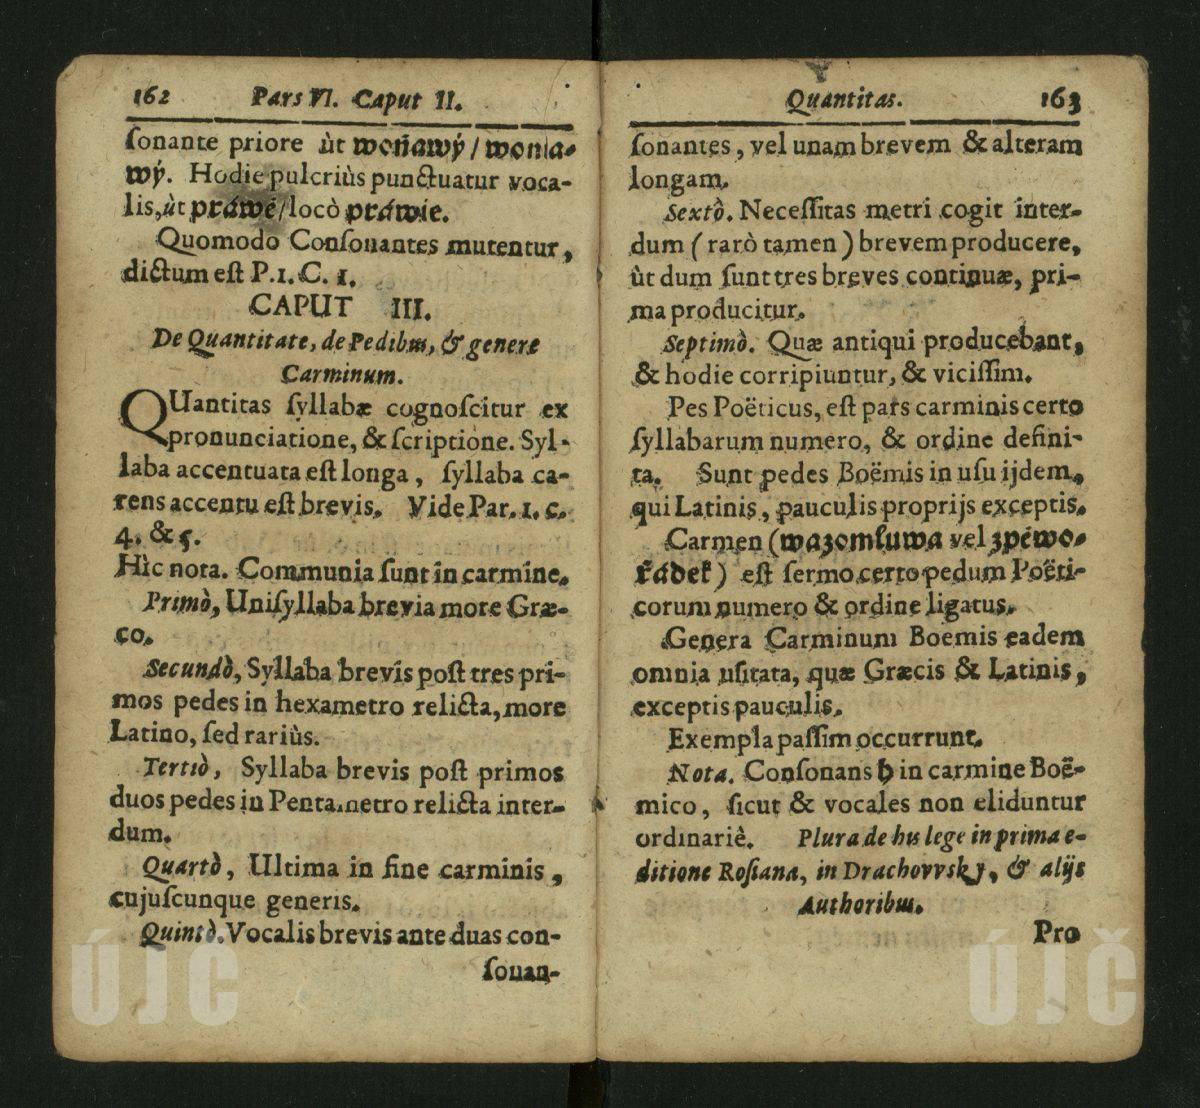 162 Pars VI. Caput II.
ſonante priore ùt woňawý / wonia-
wý. Hodie pulcriùs punctuatur voca-
lis, ùt práwě / locò práwie.
Quomodo Conſonantes mutentur,
dictum eſt P. 1. C. 1.
CAPUT III.
De Quantitate, de Pedibus, & genere
Carminum.
QUantitas ſyllabæ cognoſcitur ex
pronunciatione, & ſcriptione. Syl-
laba accentuata eſt longa, ſyllaba ca-
rens accentu eſt brevis. Vide Par. 1. c.
4. & 5.
Hìc nota. Communia ſunt in carmine.
Primò, Uniſyllaba brevia more Græ-
co.
Secundò, Syllaba brevis poſt tres pri-
mos pedes in hexametro relicta, more
Latino, ſed rariùs.
Tertiò, Syllaba brevis poſt primos
duos pedes in Pentametro relicta inter-
dum.
Quartò, Ultima in fine carminis,
cujuſcunque generis.
Quintò. Vocalis brevis ante duas con-
ſonan-
Quantitas. 163
ſonantes, vel unam brevem & alteram
longam.
Sextò. Neceſſitas metri cogit inter-
dum (rarò tamen) brevem producere,
ùt dum ſunt tres breves continuæ, pri-
ma producitur.
Septimò. Quæ antiqui producebant,
& hodie corripiuntur, & viciſſim.
Pes Poëticus, eſt pars carminis certo
ſyllabarum numero, & ordine defini-
ta. Sunt pedes Boëmis in uſu ijdem,
qui Latinis, pauculis proprijs exceptis.
Carmen (wazomluwa vel zpěwo-
řádek) eſt ſermo certo pedum Poëti-
corum numero & ordine ligatus.
Genera Carminum Boemis eadem
omnia uſitata, quæ Græcis & Latinis,
exceptis pauculis.
Exempla paſſim occurrunt.
Nota. Conſonans h in carmine Boë-
mico, ſicut & vocales non eliduntur
ordinariè. Plura de his lege in prima e-
ditione Roſiana, in Drachovvsky, & alijs
Authoribus.
Pro
ÚJČ
ÚJČ